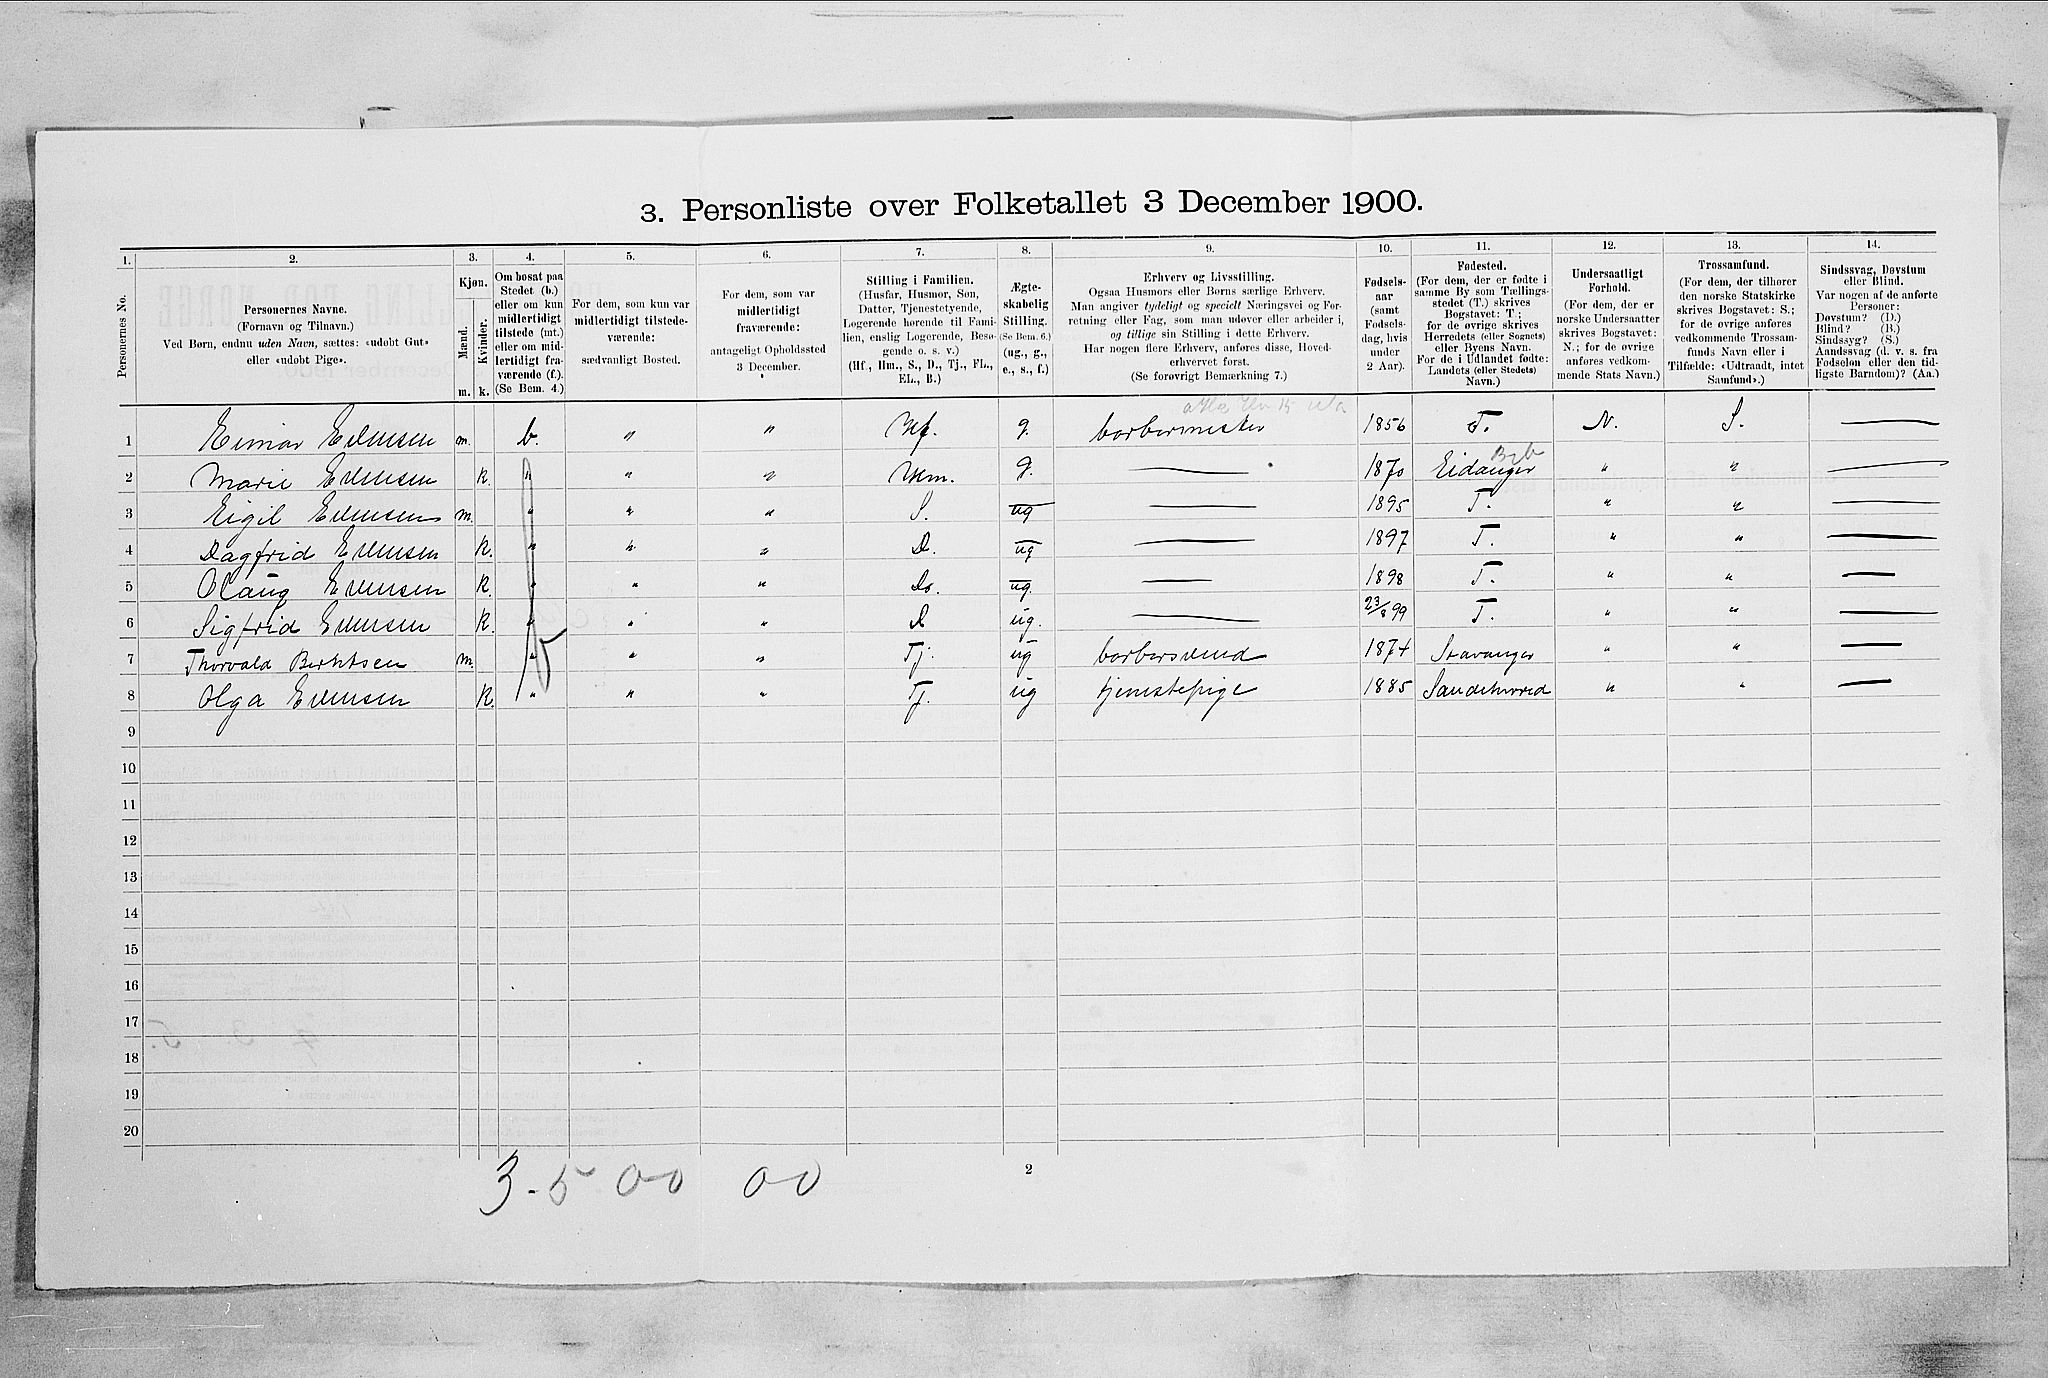 3. Personliste over Folketallet 3 December 1900.
1. 2. 3. 4. 5. 6. 7. 8. 9. 10. 11. 12. 13. 14.
Personernes No.
Personernes Navne.
(Fornavn og Tilnavn.)
Ved Børn, endnu uden Navn, sættes: «udøbt Gut»
eller «udøbt Pige».
Kjøn.
Mænd.
Kvinder.
m. k.
Om bosat paa
Stedet (b.)
eller om kun
midlertidigt
tilstede (mt.)
eller om mid-
lertidigt fra-
værende (f.).
(Se Bem. 4.)
For dem, som kun var
midlertidigt tilstede-
værende:
sædvanligt Bosted.
For dem, som var
midlertidigt
fraværende:
antageligt Opholdssted
3 December.
Stilling i Familien.
(Husfar, Husmor, Søn,
Datter, Tjenestetyende,
Logerende hørende til Fami-
lien, enslig Logerende, Besø-
gende o. s. v.)
(Hf., Hm., S., D., Tj., FL.,
EL., B.)
Ægte-
skabelig
Stilling.
(Se Bem. 6.)
(ug., g.,
e., s., f.)
Erhverv og Livsstilling.
Ogsaa Husmors eller Børns særlige Erhverv.
Man angiver tydeligt og specielt Næringsvei og For-
retning eller Fag, som man udøver eller arbeider i,
og tillige sin Stilling i dette Erhverv.
Har nogen flere Erhverv, anføres disse, Hoved-
erhvervet først.
(Se forøvrigt Bemærkning 7.)
Fødsels-
aar
(samt
Fødsels-
dag, hvis
under
2 Aar).
Fødested.
(For dem, der er fødte i
samme By som Tællings-
stedet (T.) skrives
Bogstavet: T.;
for de øvrige skrives
Herredets (eller Sognets)
eller Byens Navn.
For de i Udlandet fødte:
Landets (eller Stedets)
Navn.)
Undersaatligt
Forhold.
(For dem, der er
norske Undersaatter
skrives Bogstavet:
N.; for de øvrige
anføres vedkom-
mende Stats Navn.)
Trossamfund.
(For dem, der tilhører
den norske Statskirke
skrives Bogstavet: S.;
for de øvrige anføres
vedkommende Trossam-
funds Navn eller i
Tilfælde: «Udtraadt, intet
Samfund».)
Sindssvag, Døvstum
eller Blind.
Var nogen af de anførte
Personer:
Døvstum? (D.)
Blind? (B.)
Sindssyg? (S.)
Aandssvag (d. v. s. fra
Fødselen eller den tid-
ligste Barndom)? (Aa.)
1 Eimar Evensen m. b. " " Hf. g. barbermester 1856 T. N. S. —
2 Marie Evensen k. " " " Hm. g. — 1870 Eidanger " " —
3 Eigil Evensen m. " " " S. ug — 1895 T. " " —
4 Dagfrid Evensen k. " " " D. ug — 1897 T. " " —
5 Olaug Evensen k. " " " Do. ug. — 1898 T. " " —
6 Sigfrid Evensen k. " " " D ug. — 23/8 99 T. " " —
7 Thorvald Berntsen m. " " " Tj. ug barbersvend 1874 Stavanger " " —
8 Olga Evensen k. " " " Tj. ug tjenstepige 1885 Sandeherred " " —
9
10
11
12
13
14
15
16
17
18
19
20
3 - 5 00 00
2